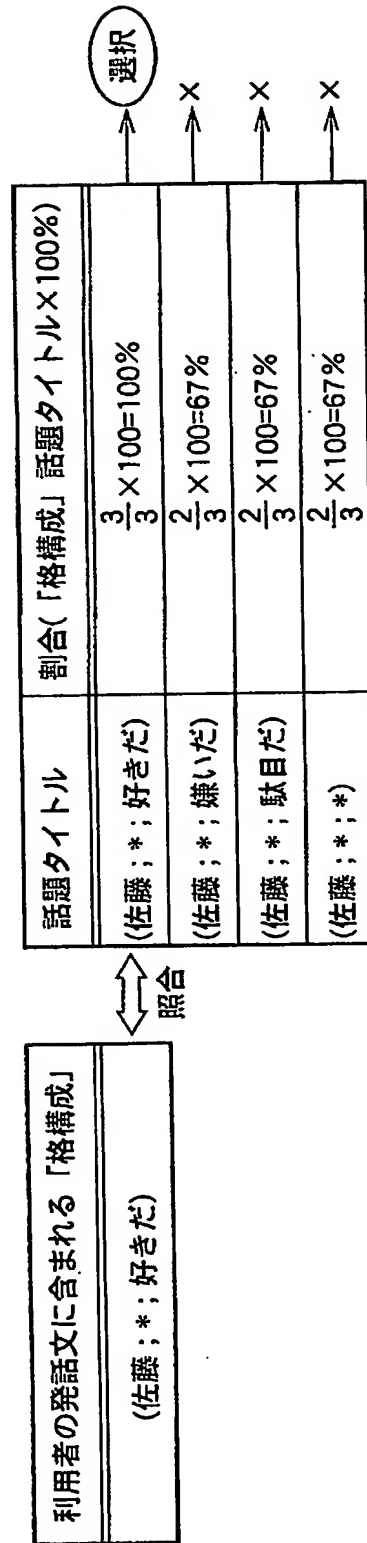 利用者の発話文に含まれる「格構成」
(佐藤；*；好きだ)
照合
話題タイトル 割合(「格構成」話題タイトル×100%)
(佐藤；*；好きだ) 3/3×100=100% 選択
(佐藤；*；嫌いだ) 2/3×100=67% ×
(佐藤；*；駄目だ) 2/3×100=67% ×
(佐藤；*；*) 2/3×100=67% ×